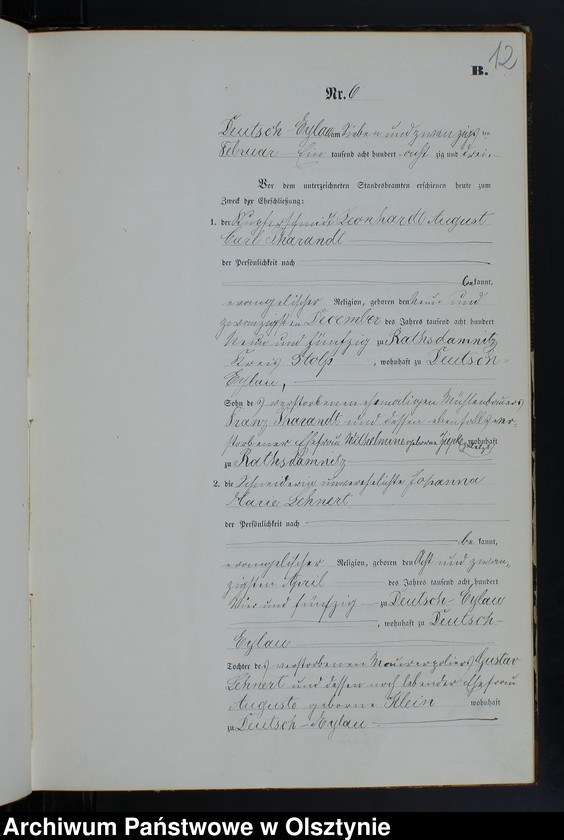 12
B.
Nr. 6
Deutsch-Eylau am Sieben und zwanzigsten
Februar Ein tausend acht hundert acht zig und drei.
Vor dem unterzeichneten Standesbeamten erschienen heute zum
Zweck der Eheschließung:
1. der Kupferschmidt Leonhardt August
Carl Tharandt
der Persönlichkeit nach
bekannt,
evangelischer Religion, geboren den neun und
zwanzigsten December des Jahres tausend acht hundert
und fünfzig zu Rathsdamnitz
Kreis Stolp, wohnhaft zu Deutsch-
Eylau,
Sohn des verstorbenen ehemaligen Mühlenbauers
Franz Tharandt und dessen ebenfalls ver-
storbener Ehefrau Wilhelmine geborne wohnhaft
zu Rathsdamnitz
2. die Schneiderin unverehelichte Johanna
Marie Lehnert
der Persönlichkeit nach
be kannt,
evangelischer Religion, geboren den Acht und zwan-
zigsten April des Jahres tausend acht hundert
Vier und fünfzig zu Deutsch-Eylau
, wohnhaft zu Deutsch-
Eylau
Tochter des verstorbenen Maurerpoliers Gustav
Lehnert und dessen noch lebender Ehefrau
Auguste geborne Klein wohnhaft
zu Deutsch-Eylau
Archiwum Państwowe w Olsztynie